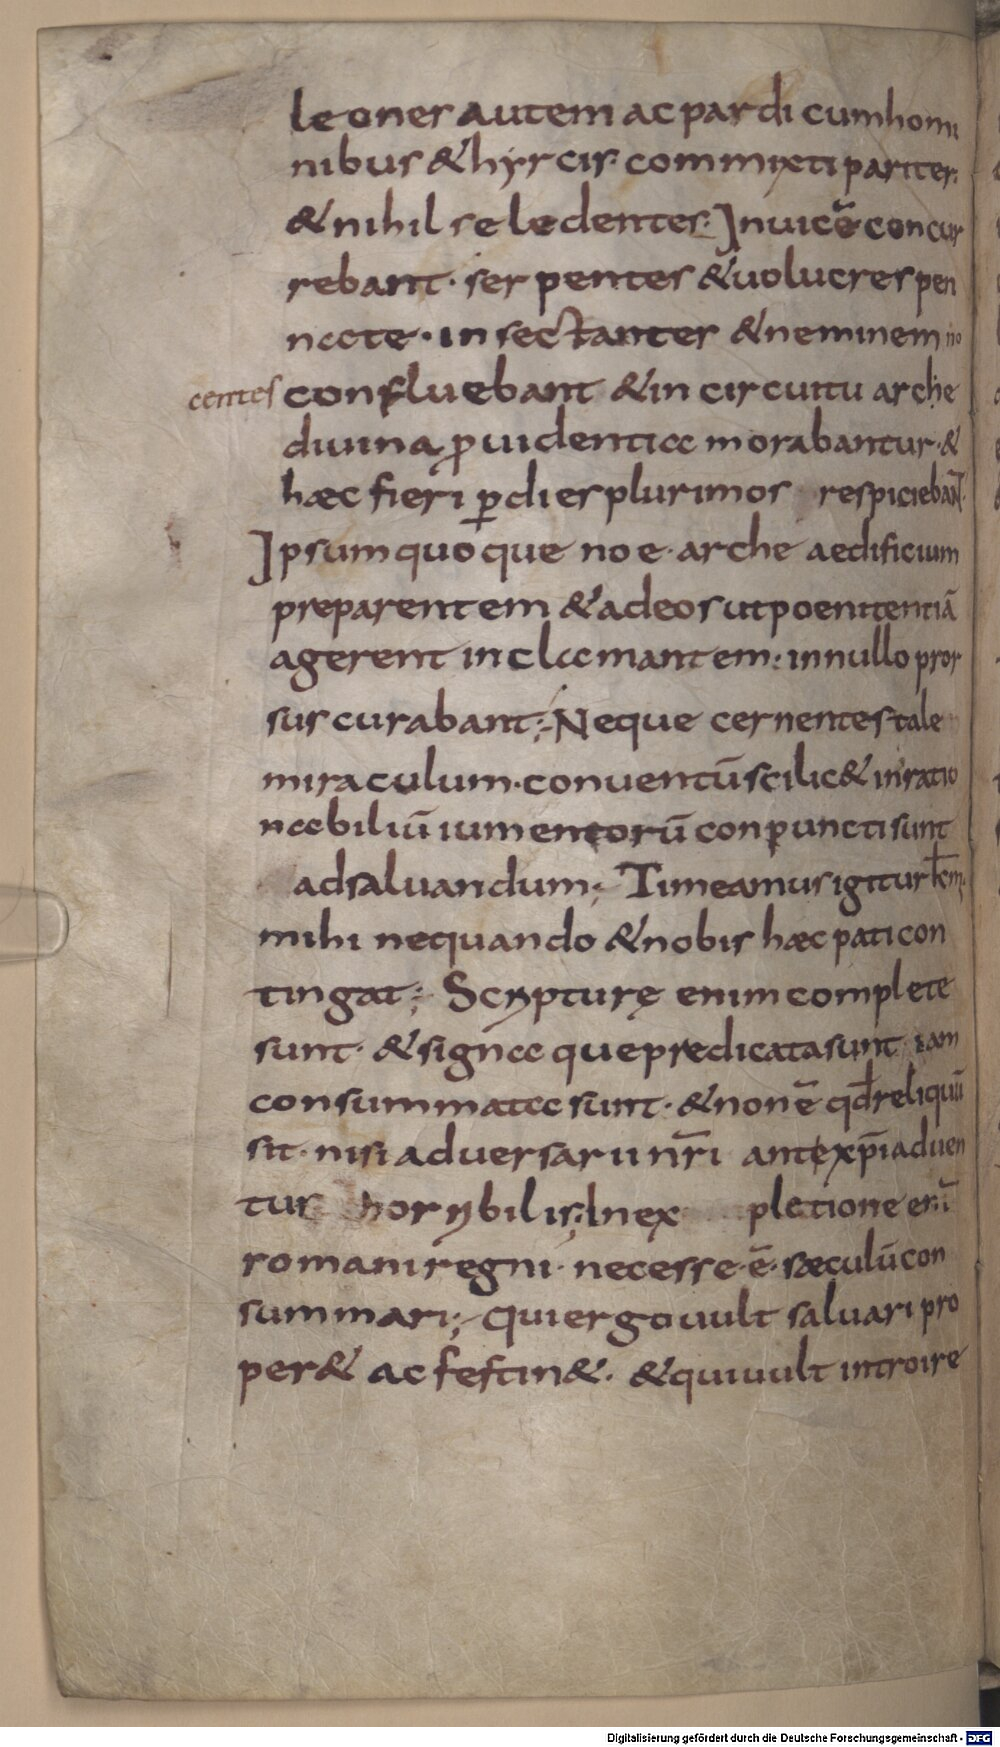 leones autem ac pardi cum homi
nibus & hyrcis· commixti pariter·
& nihil se ledentes· Inuicē concur
rebant· serpentes & uolucres pen
nate· insectantes & neminem no
centes confluebant & in circuitu arche
diuina ꝓuidentia morabantur· &
hæc fieri ꝑ dies plurimos respiciebant̄·
Ipsum quoque noe· arche aedificium
preparentem & ad eos ut poenitentiā
agerent inclamantem· in nullo pror
sus curabant; Neque cernentes tale
miraculum· conuentū scilic& inratio
nabiliū iumentorū conpuncti sunt
ad saluandum; Timeamus igitur
mihi nequando & nobis hæc pati con
tingat; Scrypturę enim complete
sunt· & signa que predicata sunt iam
consummata sunt· & non ē qđ reliquū
sit· nisi aduersarii nr̄i ante xp̄i aduen
tus horrybilis; In ex pletione en̄i
romani regni· necesse· ē· sæculū con
summari; Qui ergo uult saluari pro
per& ac festin&· & qui uult introire
Digitalisierung gefördert durch die Deutsche Forschungsgemeinschaft - DFG